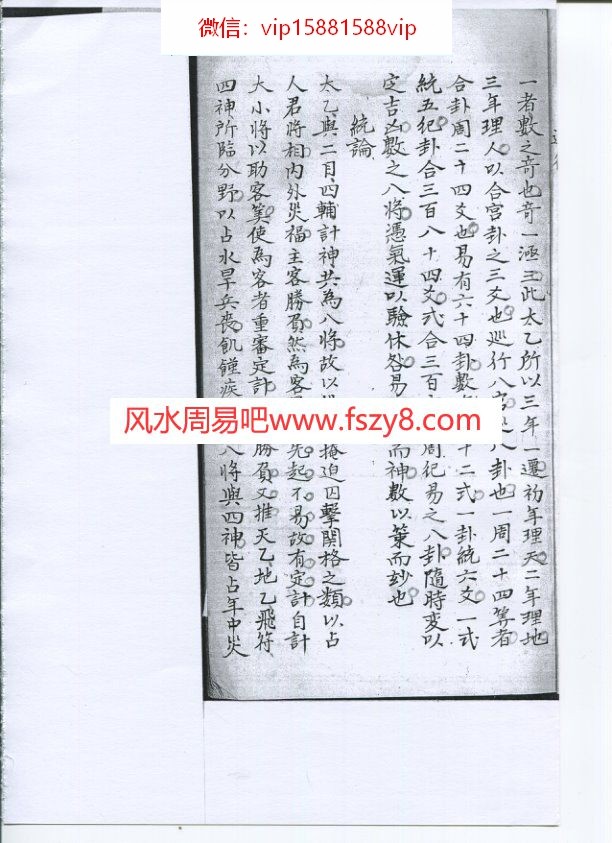 微信：vip15881588vip
一者數之奇也竒一涵三此太乙所以三年一遷初年理天二年理地
三年理人以合宮卦之三爻也巡行八宮
八卦也一周二十四筭者
合卦周二十四爻也易有六十四卦數
十二式一卦統六爻一式
統五紀卦合三百八十四爻式合三百
周紀易之八卦隨時変以
定吉凶數之八將憑氣運以驗休咎易
而神數以策而玅也
統論
太乙與二目四輔計神共為八將故以
掩迫囚擊関格之類以占
人君將相內外災福主客勝負然為客
先起不易故有定計自計
大小將以助客筭使為客者重審定計
勝負又推天乙地乙飛符
四神所臨分野以占水旱兵喪飢饉疾
八將與四神皆占年中災
风水周易吧www.fszy8.com